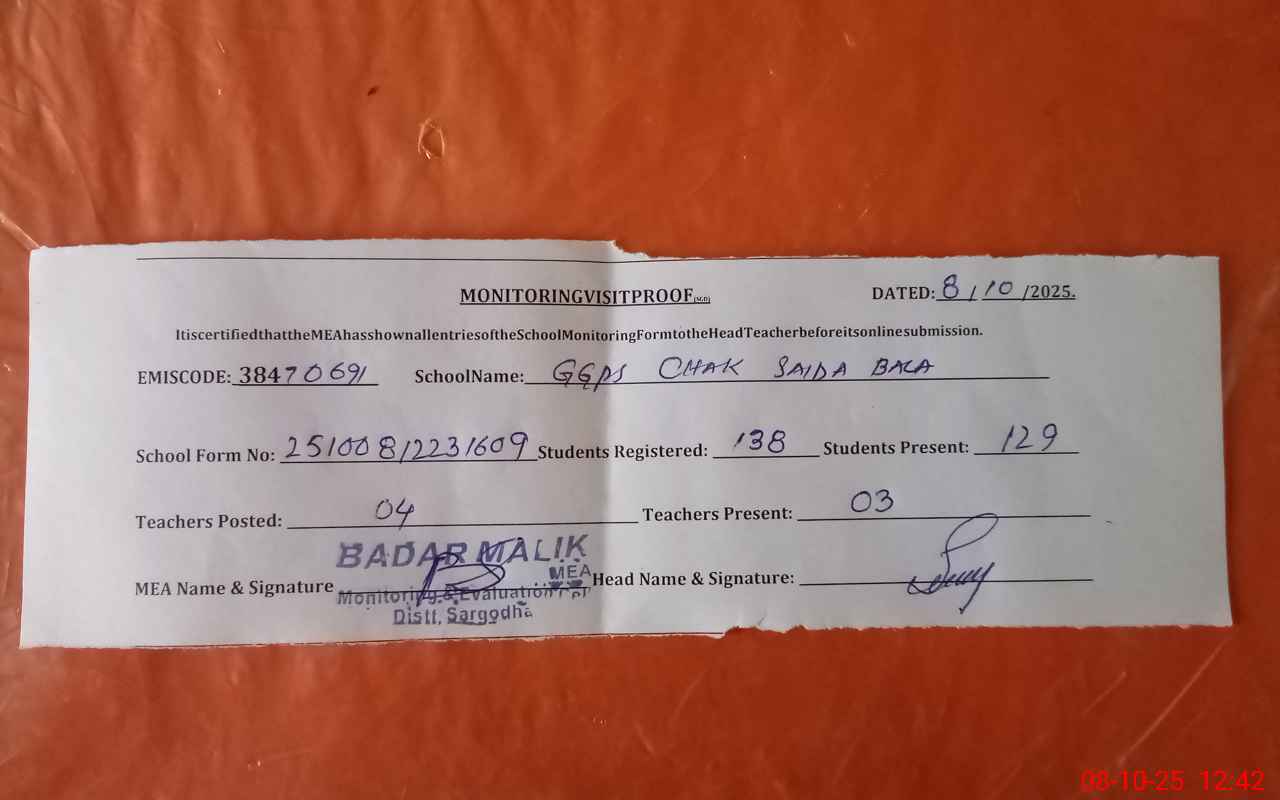 MONITORINGVISITPROOF(M.D)
DATED: 8/10/2025.
ItiscertifiedthattheMEAhasshownallentriesoftheSchoolMonitoringFormtotheHeadTeacherbeforeitsonlinesubmission.
EMISCODE: 38470691 SchoolName: GGPS CHAK SAIDA BALA
School Form No: 25100812231609 Students Registered: 138 Students Present: 129
Teachers Posted: 04 Teachers Present: 03
BADAR MALIK
MEA
MEA Name & Signature Head Name & Signature:
Monitoring & Evaluation
Distt, Sargodha
08-10-25 12:42